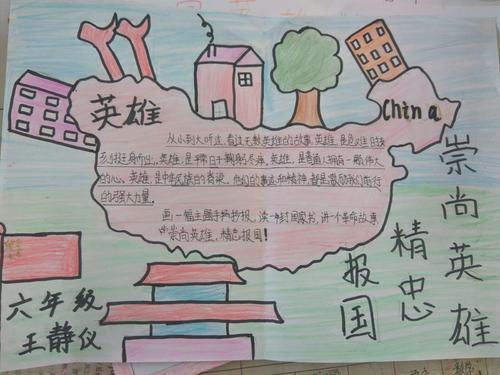 英雄
China
从小到大听过、看过无数英雄的故事,英雄,是危难时挺
身而出,英雄,是鞠躬尽瘁,英雄,是普通人拥有一颗伟大
的心。英雄,是中华民族的脊梁,他们的事迹和精神,都是激励我们前行
的强大力量。
画一幅主题手抄报,读一封家书,讲一个革命故事
崇尚英雄,精忠报国!
崇尚英雄
精忠
报国
六年级
王静仪